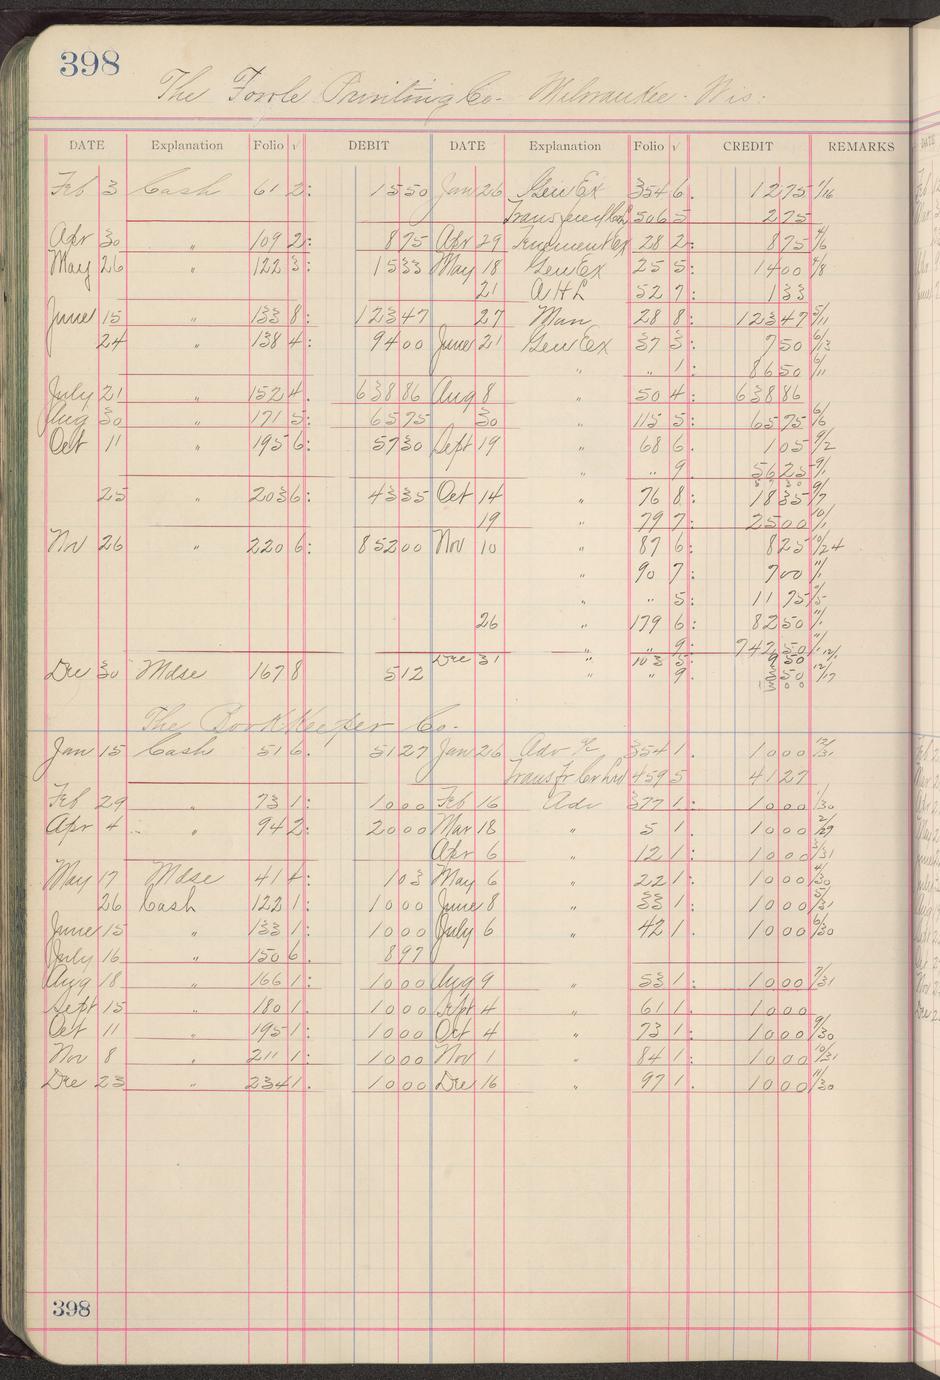 398
The Fowle Printing Co. Milwaukee. Wis.
DATE Explanation Folio √ DEBIT DATE Explanation Folio √ CREDIT REMARKS
Feb 3 Cash 61 2: 15 50 Jan 26 Gen Ex 354 6. 12 75 1/16
506 5 2 75
Apr 30 " 109 2: 8 75 Apr 29 28 2: 8 75 4/6
May 26 " 122 3: 15 33 May 18 Gen Ex 25 5: 14 00 4/8
21 A H L 52 7: 1 33
June 15 " 133 8: 123 47 27 Man 28 8: 123 47 5/11
24 " 138 4: 94 00 June 21 Gen Ex 37 3: 7 50 6/13
" " 1: 86 50 6/11
July 21 " 152 4. 638 86 Aug 8 " 50 4: 638 86
Aug 30 " 171 5: 65 75 30 " 115 5: 65 75 6/6
Oct 11 " 195 6: 57 30 Sept 19 " 68 6. 1 05 9/2
" " 9. 56 25 9/1
25 " 203 6: 43 35 Oct 14 " 76 8: 18 35 9/7
19 " 79 7: 25 00 10/1
Nov 26 " 220 6: 852 00 Nov 10 " 87 6: 8 25 10/24
" 90 7: 7 00 11/1
" " 5: 11 75 11/5
26 " 179 6: 82 50 11/1
" " 9: 742 50 11/1
Dec 31 " 103 5: 9 50 12/1
Dec 30 Mdse 167 8 5 12 " " 9. 3 50 12/17
13 00
The BookKeeper Co.
Jan 15 Cash 51 6. 51 27 Jan 26 Adv 354 1. 10 00 12/31
Transfr 459 5 41 27
Feb 29 " 73 1: 10 00 Feb 16 Adv 377 1: 10 00 1/30
Apr 4 " 94 2: 20 00 Mar 18 " 5 1. 10 00 2/29
Apr 6 " 12 1: 10 00 3/31
May 17 Mdse 41 4: 1 03 May 6 " 22 1: 10 00 4/30
26 Cash 122 1: 10 00 June 8 " 33 1: 10 00 5/31
June 15 " 133 1: 10 00 July 6 " 42 1. 10 00 6/30
July 16 " 150 6. 8 97
Aug 18 " 166 1: 10 00 Aug 9 " 53 1: 10 00 7/31
Sept 15 " 180 1. 10 00 Sept 4 " 61 1: 10 00
Oct 11 " 195 1: 10 00 Oct 4 " 73 1: 10 00 9/30
Nov 8 " 211 1: 10 00 Nov 1 " 84 1: 10 00 10/31
Dec 23 " 234 1. 10 00 Dec 16 " 97 1. 10 00 11/30
398